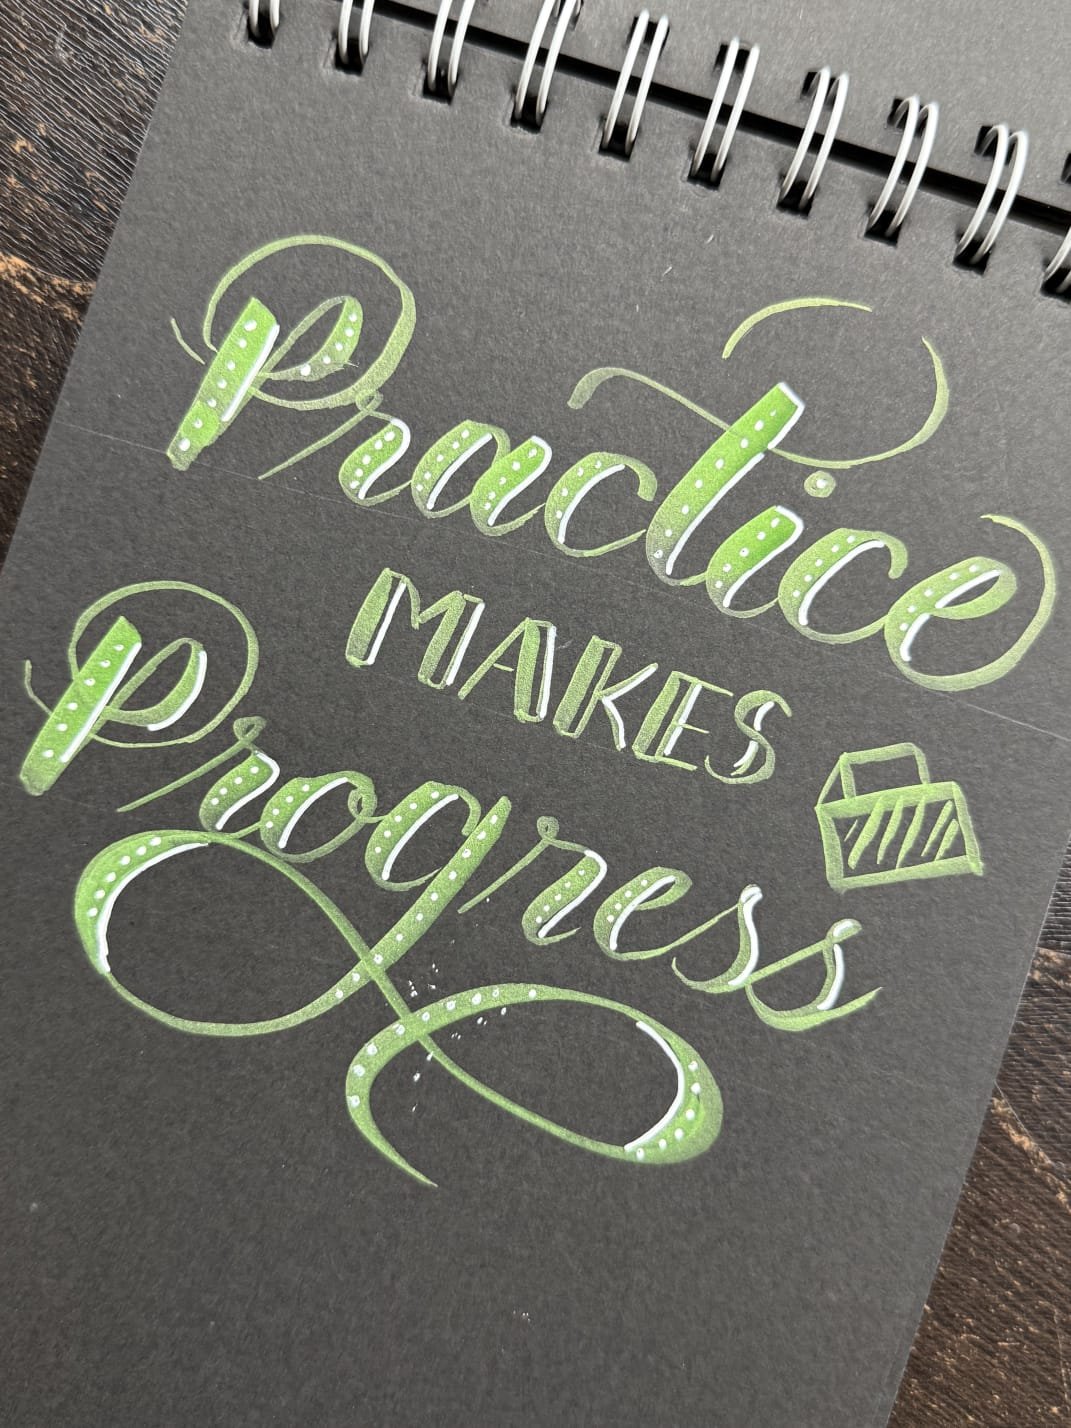 Practice
MAKES
Progress